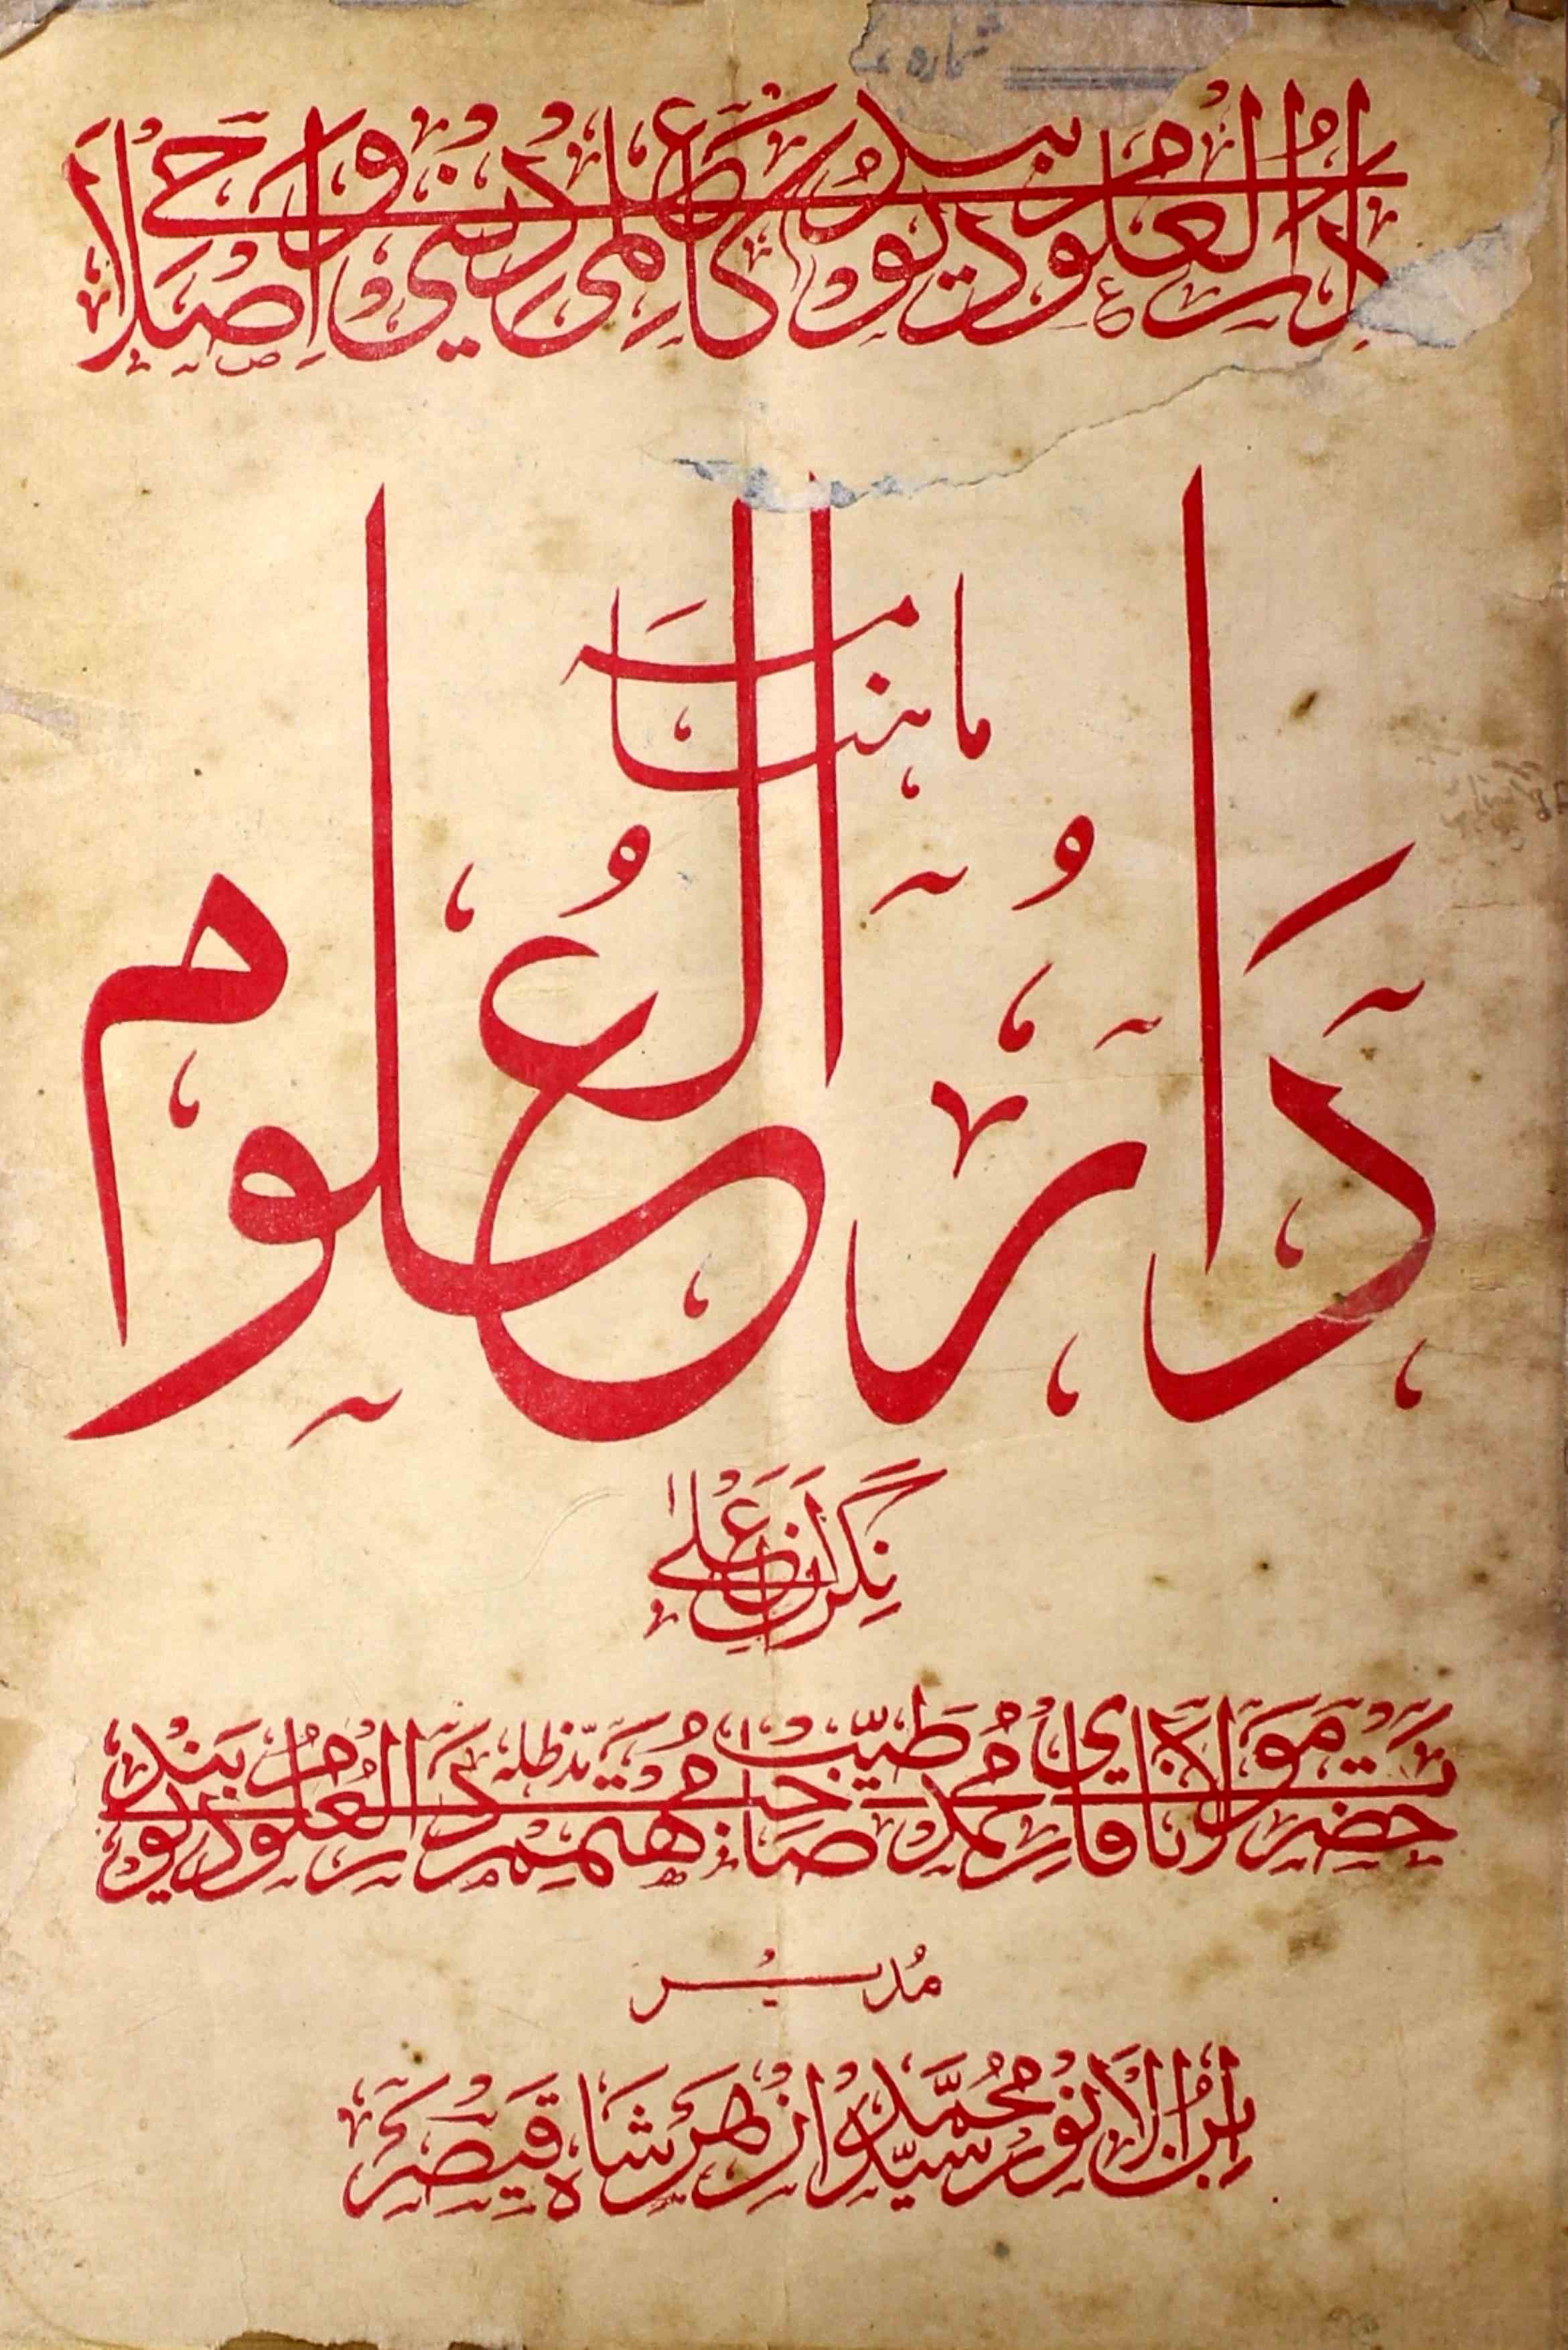 شمارہ
دارالعلوم دیوبند کا علمی دینی و اصلاحی
ماہنامہ
دارالعلوم
نگران اعلیٰ
حضرت مولانا قاری محمد طیب صاحب مدظلہ مہتمم دارالعلوم دیوبند
مدیر
ابن الانور سید محمد ازہر شاہ قیصر